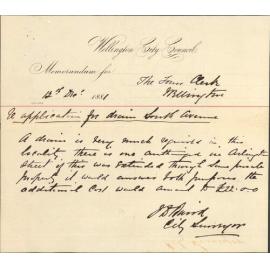 Wellington City Council
Memorandum for
The Town Clerk
12th Decr 1881
Wellington
Re application for drain South Avenue
A drain is very much required in this
locality, there is one authorized in Arlington
Street if this was extended through some private
property it would answer both purposes the
additional Cost would amount to £22.0.0
City Surveyor